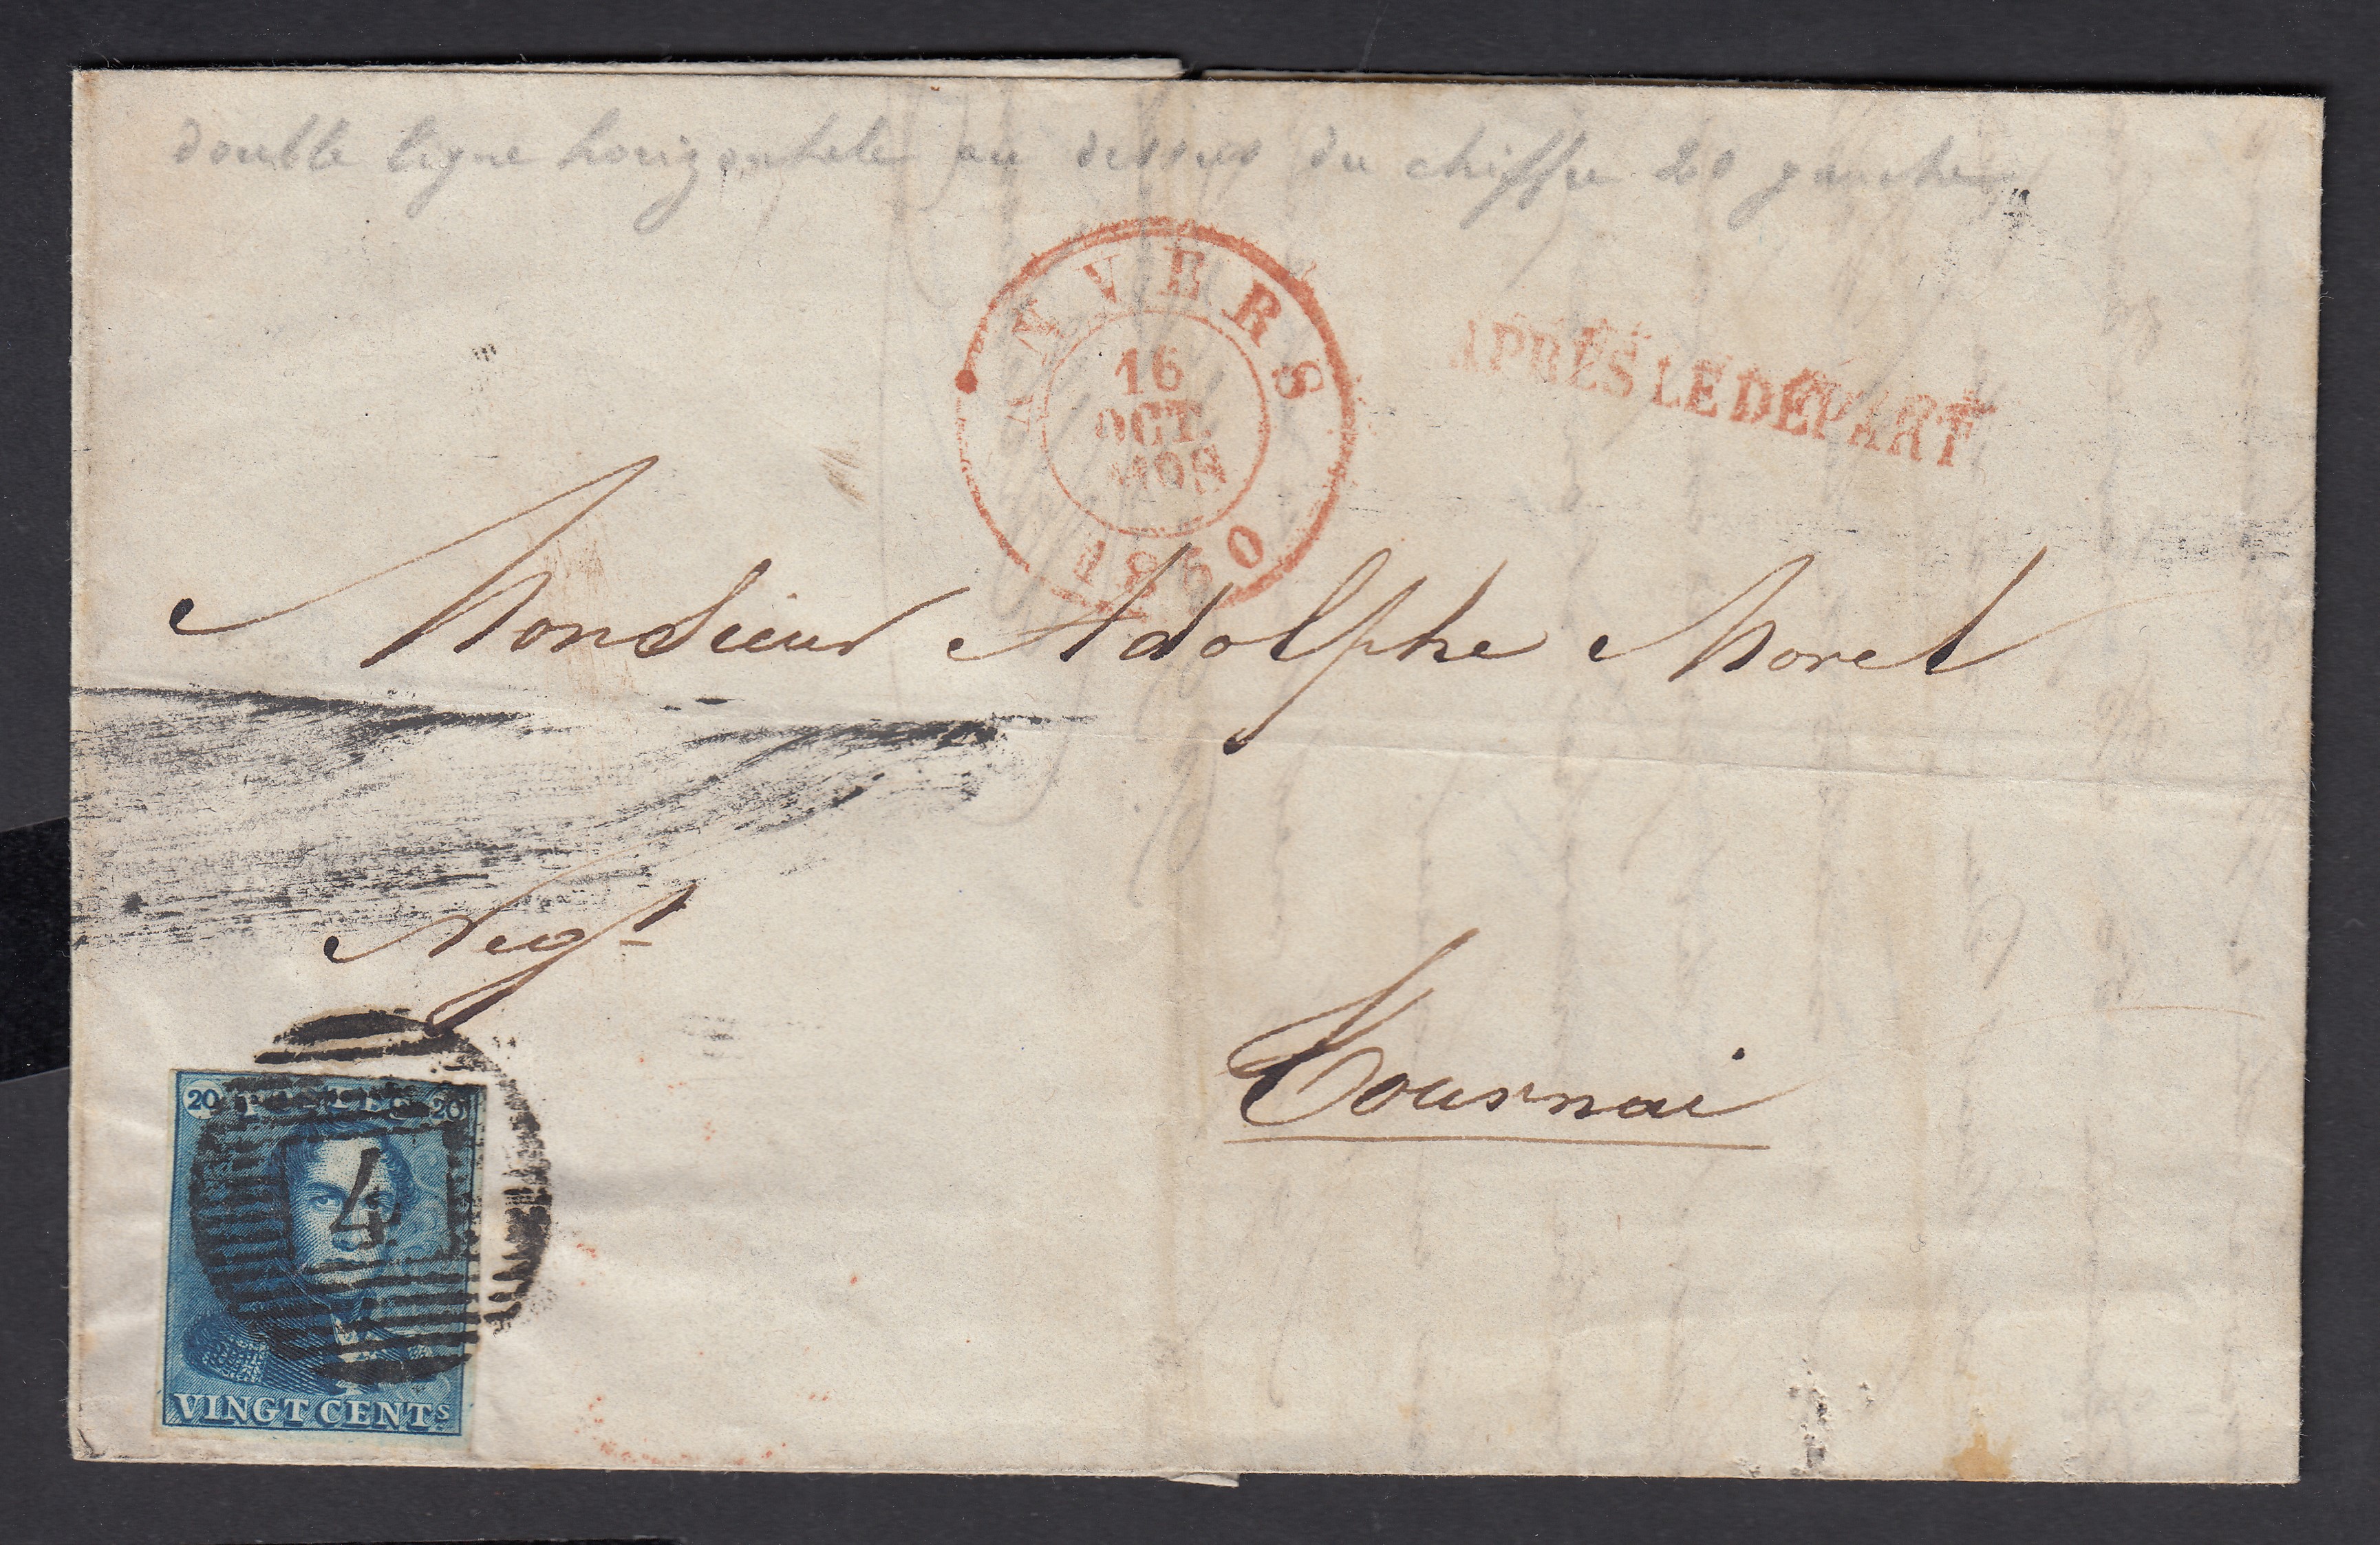 double ligne horizontale au dessus du chiffre 20 gauche
ANVERS
16
OCT.
1850
APRÈS LE DÉPART
Monsieur Adolphe Morel
Negt
Tournai
20 POSTES 20
4
VINGT CENTS